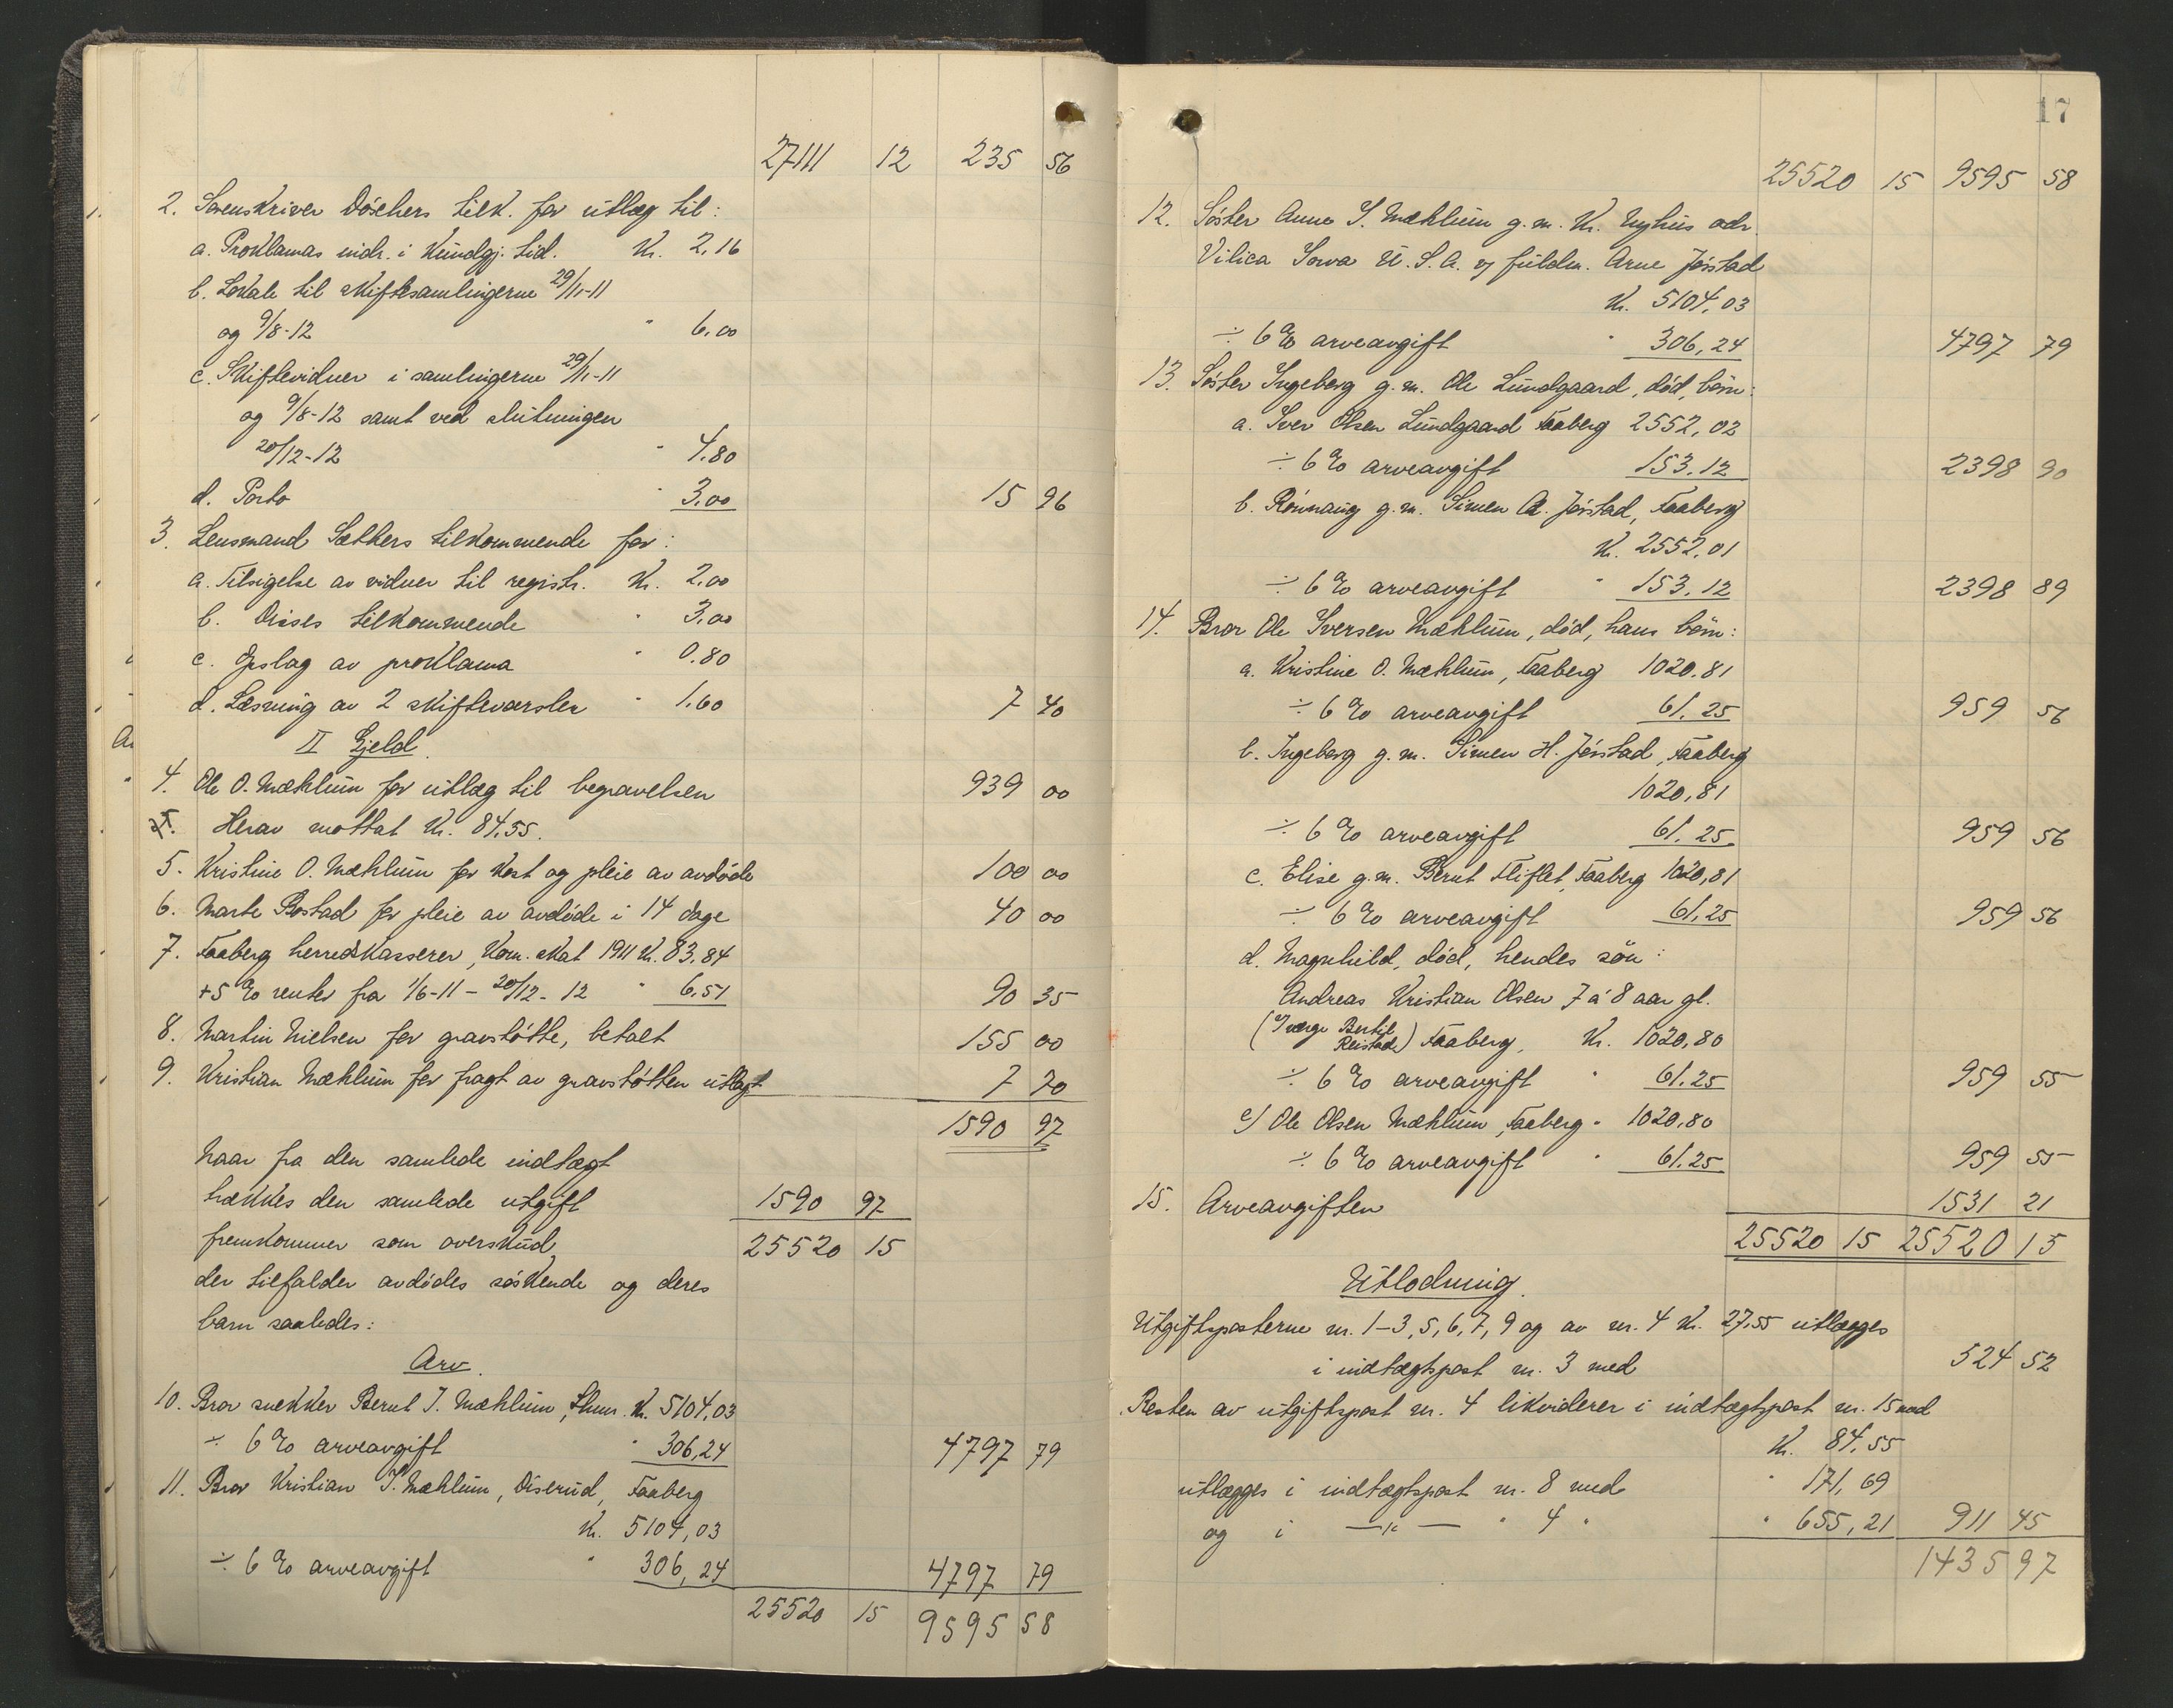 27111 12 235 56
2. Sorenskriver Döschers tilk. for utlæg til:
a. Proklamas indr. i Kundgj. tid. Kr. 2,16
b. Lokale til skiftesamlingerne 29/11-11
og 9/8-12 " 6.00
c. Skiftevidner i samlingerne 29/11-11
og 9/8-12 samt ved slutningen
20/12-12 " 4.80
d. Porto " 3.00 15 96
3. Lensmand Sæthers tilkommende for:
a. Tilsigelse av vidner til registr. Kr. 2.00
b. Disses tilkommende " 3.00
c. Opslag av proklama " 0.80
d. Læsning av 2 skiftevarsler " 1.60 7 40
II Gjeld.
4. Ole O. Mæhlum for utlæg til begravelsen 939 00
Herav mottat Kr. 84.55.
5. Kristine O. Mæhlum for kost og pleie av avdøde 100 00
6. Marte Bostad for pleie av avdøde i 14 dage 40 00
7. Faaberg herredskasserer, Kom. skat 1911 Kr. 83.84
+5 % renter fra 1/6-11 - 20/12-12 " 6.51 90 35
8. Martin Nielsen for gravstøtte, betalt 155 00
9. Kristian Mæhlum for fragt av gravstøtten utlagt 7 70
1590 97
Naar fra den samlede indtægt
trækkes den samlede utgift 1590 97
fremkommer som overskud 25520 15
der tilfalder avdødes søskende og deres
barn saaledes:
Arv.
10. Bror snekker Bernt I. Mæhlum, Lhmr. Kr. 5104,03
÷ 6 % arveavgift " 306,24 4797 79
11. Bror Kristian I. Mæhlum, Diserud, Faaberg
Kr. 5104,03
÷ 6 % arveavgift " 306,24 4797 79
25520 15 9595 58
17
25520 15 9595 58
12. Søster Anne I. Mæhlum g.m. Kr. Nyhus adr.
Vilica Iowa U.S.A. v/ fuldm. Arne Jørstad
Kr. 5104,03
÷ 6 % arveavgift " 306,24 4797 79
13. Søster Ingeborg g.m. Ole Lundgaard, død, børn:
a. Iver Olsen Lundgaard Faaberg 2552,02
÷ 6 % arveavgift 153.12 2398 90
b. Rønnaug g.m. Simen A. Jørstad, Faaberg
Kr. 2552.01
÷ 6 % arveavgift " 153.12 2398 89
14. Bror Ole Iversen Mæhlum, død, hans børn:
a. Kristine O. Mæhlum, Faaberg 1020.81
÷ 6 % arveavgift 61.25 959 56
b. Ingeborg g.m. Simen H. Jørstad, Faaberg
1020,81
÷ 6 % arveavgift 61.25 959 56
c. Elise g.m. Bernt Fliflet, Faaberg 1020,81
÷ 6 % arveavgift 61,25 959 56
d. Magnhild, død, hendes søn:
Andreas Kristian Olsen 7 á 8 aar gl.
(Værge Bertil Reistad) Faaberg, Kr. 1020,80
÷ 6 % arveavgift " 61.25 959 55
e) Ole Olsen Mæhlum, Faaberg " 1020,80
÷ 6 % arveavgift " 61.25 959 55
15. Arveavgiften 1531 21
25520 15 25520 15
Utlodning.
Utgiftsposterne nr. 1-3, 5, 6, 7, 9 og av nr. 4 Kr. 27,55 utlægges
i indtægtspost nr. 3 med 524 52
Resten av utgiftspost nr. 4 likviderer i indtægtspost nr. 15 med
Kr. 84.55
utlægges i indtægtspost nr. 8 med " 171,69
og i —"— " 4 " " 655,21 911 45
1435 97